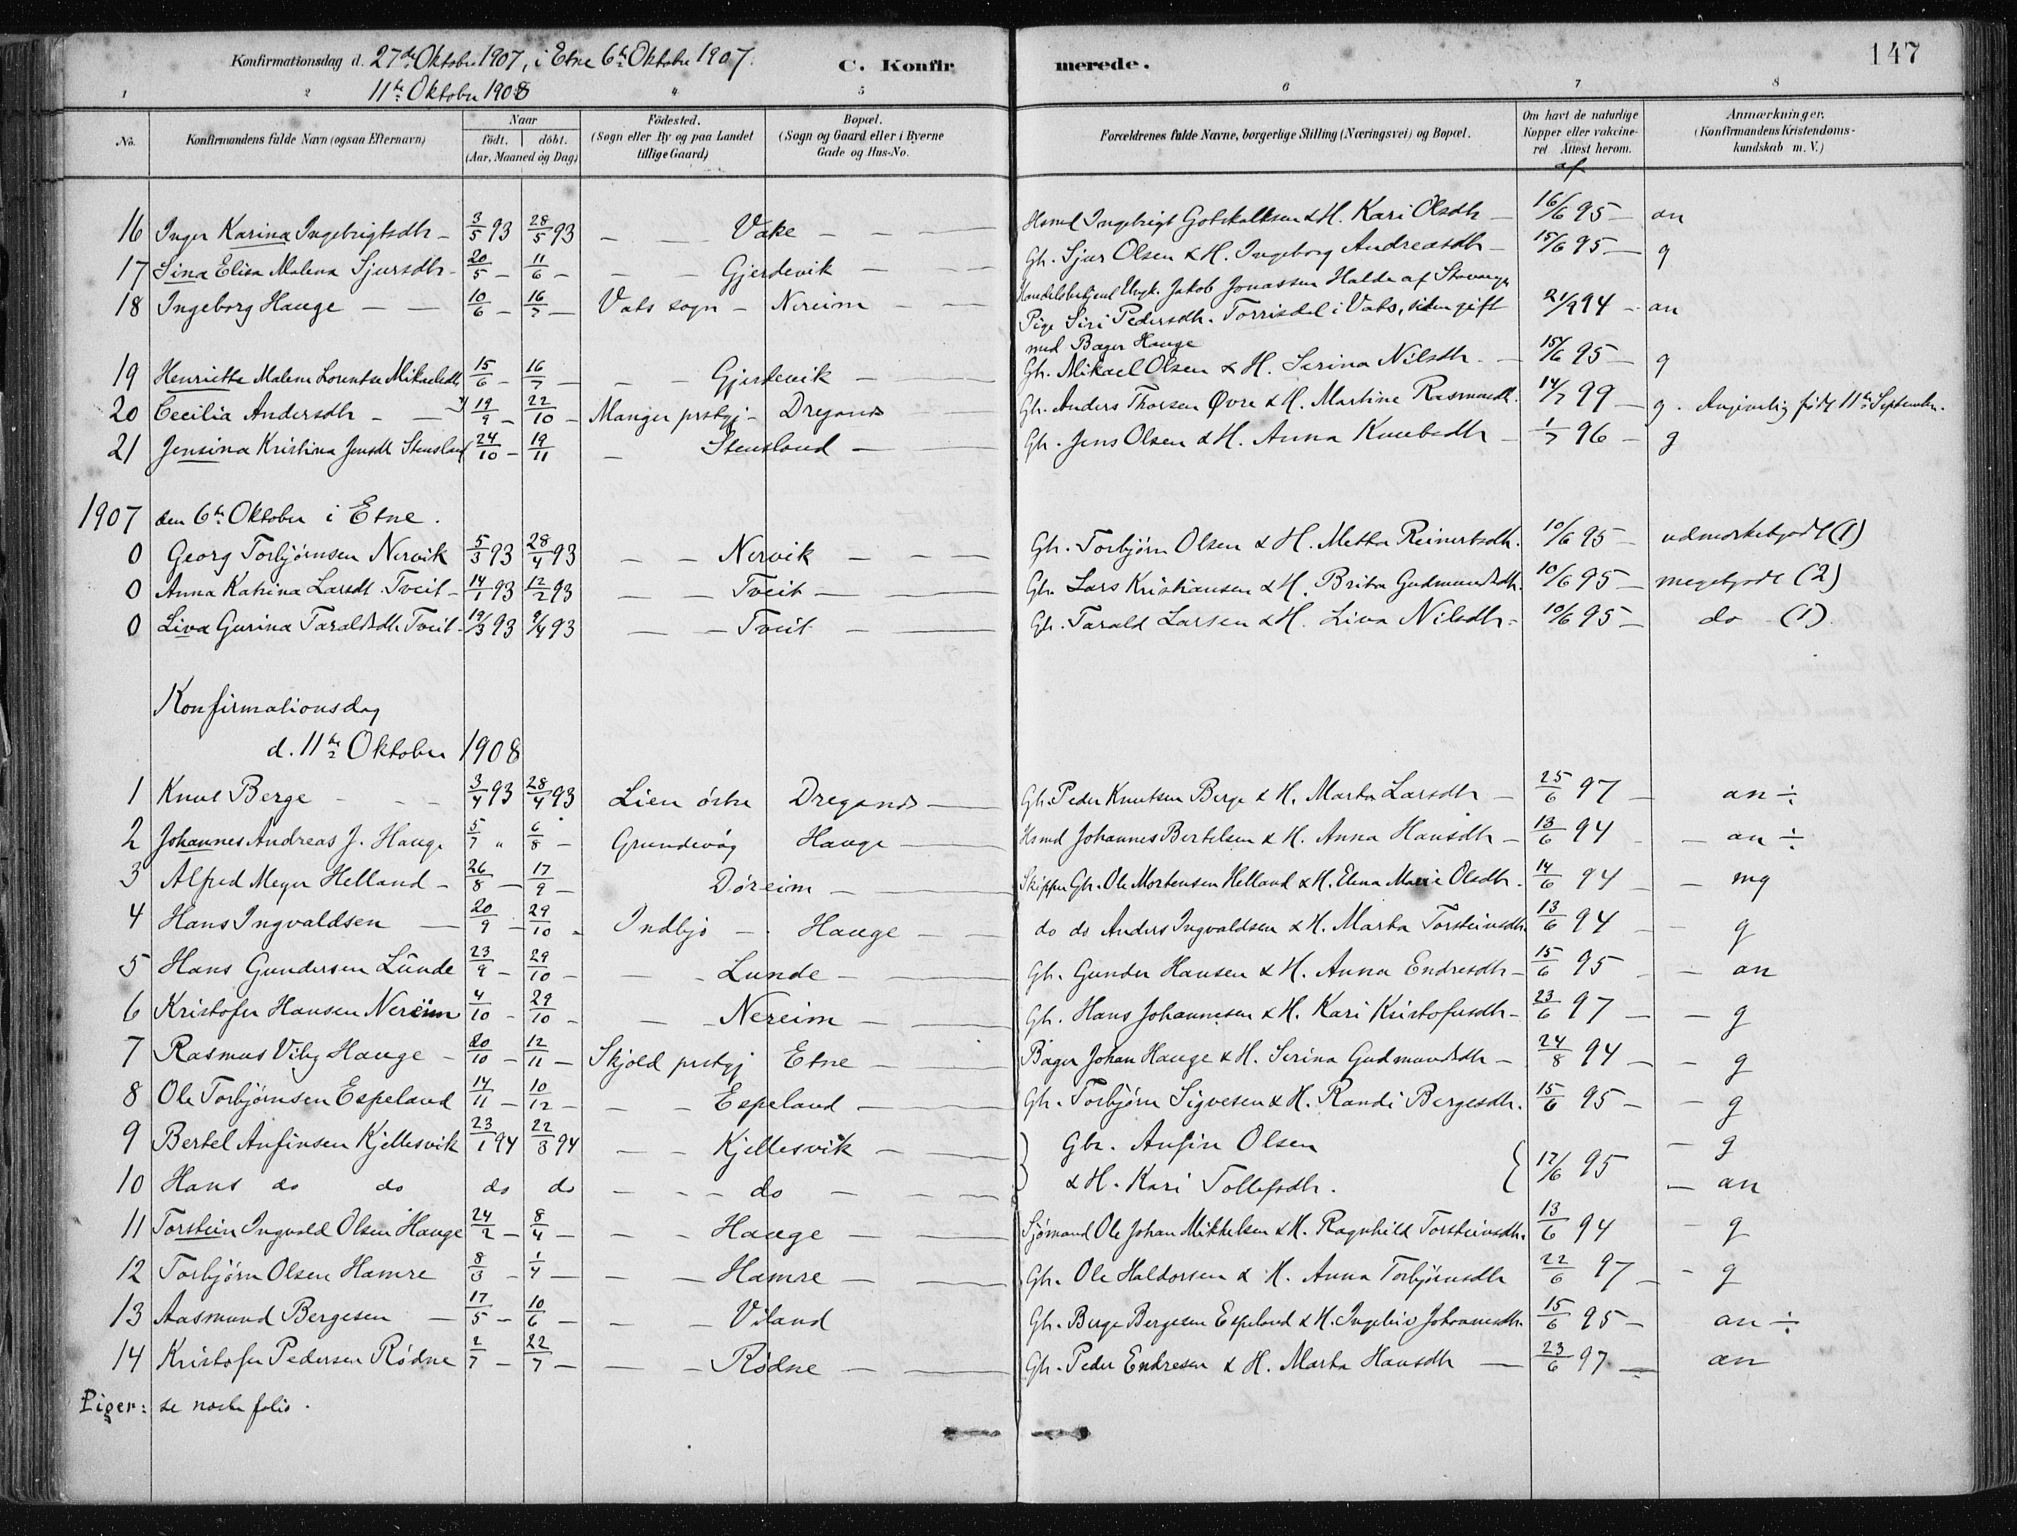 Konfirmationsdag d. 27de Oktober 1907, i Etne 6te Oktober 1907.
11te Oktober 1908
C. Konfirmerede.
147
1 2 4 5 6 7 8
No. Konfirmandens fulde Navn (ogsaa Efternavn) Naar født. døbt. (Aar, Maaned og Dag) Fødested. (Sogn eller By og paa Landet tillige Gaard) Bopæl. (Sogn og Gaard eller i Byerne Gade og Hus-No. Forældrenes fulde Navne, borgerlige Stilling (Næringsvei) og Bopæl. Om havt de naturlige Kopper eller vakcineret Attest herom. Anmærkninger. (Konfirmandens Kristendomskundskab m. V.)
af
16 Inger Karina Ingebrigtsdtr - 3/5 93 28/5 93 - - Vake - - Hsmd Ingebrigt Gotskalksen & H. Kari Olsdtr - 16/6 95 - an
17 Sina Elisa Malena Sjursdtr - 20/5 - 11/6 - - - Gjerdevik - - Gbr. Sjur Olsen & H. Ingeborg Andreasdtr - 15/6 95 - g
18 Ingeborg Hauge - - 10/6 - 16/7 - Vats sogn - Nereim - - Handelsbetjent Ungk. Jakob Jonassen Halde af Stavanger
Pige Siri Pedersdtr. Torrisdal i Vats, siden gift 21/9 94 - an
med Bager Hauge
19 Henriette Malene Lorentse Mikaelsdtr 15/6 - 16/7 - - - Gjerdevik - Gbr. Mikael Olsen & H. Serina Nilsdtr. - 15/6 95 - g
20 Cecilia Andersdtr - - 19/9 - 22/10 - Manger prstgj - Dreganes - Gbr. Anders Thorsen Øvre & H. Martine Rasmusdtr. 14/7 99 - g. Angivelig født 11te September.
21 Jensina Kristina Jensdtr Stensland 24/10 - 19/11 - Stensland - Gbr. Jens Olsen & H. Anna Knutsdtr - 1/7 96 - g
1907 den 6te Oktober i Etne.
0 Georg Torbjørnsen Nervik 5/3 93 28/4 93 - - Nervik - - Gbr. Torbjørn Olsen & H. Metta Reinertsdtr. 10/6 95 - udmerketgodt (1)
0 Anna Katrina Larsdt. Tveit - 14/1 93 12/2 93 - - Tveit - - Gbr. Lars Kristiansen & H. Brita Gudmundsdtr. 10/6 95 - megetgodt (2)
0 Liva Gurina Taraldsdtr Tveit - 19/3 93 9/4 93 - - Tveit - - Gbr. Tarald Larsen & H. Liva Nilsdtr - 10/6 95 - do (1)
Konfirmationsdag
d. 11te Oktober 1908
1 Knut Berge - - - 3/4 93 28/4 93 Lien östre Dreganes - Gbr. Peder Knutsen Berge & H. Marta Larsdtr - 25/6 97 - an ÷
2 Johannes Andreas J. Hauge 5/7 " 6/8 - Grundevåg Hauge - Hsmd Johannes Bertelsen & H. Anna Hansdtr - 13/6 94 - an ÷
3 Alfred Meyer Helland - 26/8 - 17/9 - Döreim - - Skipper Gbr. Ole Mortensen Helland & H. Elena Marie Olsdtr. 14/6 94 - mg
4 Hans Ingvaldsen - 20/9 - 29/10 - Indbjo - Hauge - - do do Anders Ingvaldsen & H. Marta Torsteinsdtr. 13/6 94 - g
5 Hans Gundersen Lunde 23/9 - 29/10 - - - Lunde - - Gbr. Gunder Hansen & H. Anna Endresdtr - 15/6 95 - an
6 Kristofer Hansen Nereim 4/10 - 29/10 - - - Nereim - - Gbr. Hans Johannesen & H. Kari Kristofersdtr - 23/6 97 - - g
7 Rasmus Viby Hauge - 20/10 - 12/11 - Skjold prstgj Etne - - Bager Johan Hauge & H. Serina Gudmundsdtr - 24/8 94 - - g
8 Ole Torbjørnsen Espeland 14/11 - 10/12 - - - Espeland - - Gbr. Torbjørn Sigvesen & H. Randi Bergesdtr. 15/6 95 - - g
9 Bertel Anfinsen Kjellesvik 23/1 94 22/3 94 - - Kjellesvik - - } Gbr. Anfin Olsen - g
10 Hans do do do do - - - do - - & H. Kari Tollefsdtr. { 12/6 95 - an
11 Torstein Ingvald Olsen Hauge 24/2 - 8/4 - - - Hauge - - Sjømand Ole Johan Mikkelsen & H. Ragnhild Torsteinsdtr. 13/6 94 - g
12 Torbjørn Olsen Hamre 8/3 - 1/4 - - - Hamre - - Gbr. Ole Haldorsen & H. Anna Torbjørnsdtr 22/6 97 - - g
13 Aasmund Bergesen - 17/5 - 10/6 - - - Viland Gbr. Berge Bergesen Espeland & H. Johannesdtr. 15/6 95 - an ÷
14 Kristofer Pedersen Rødne 2/7 - 22/7 - - - Rødne - - Gbr. Peder Endresen & H. Marta Hansdtr - 23/6 97 - an
Piger: se neste folio.